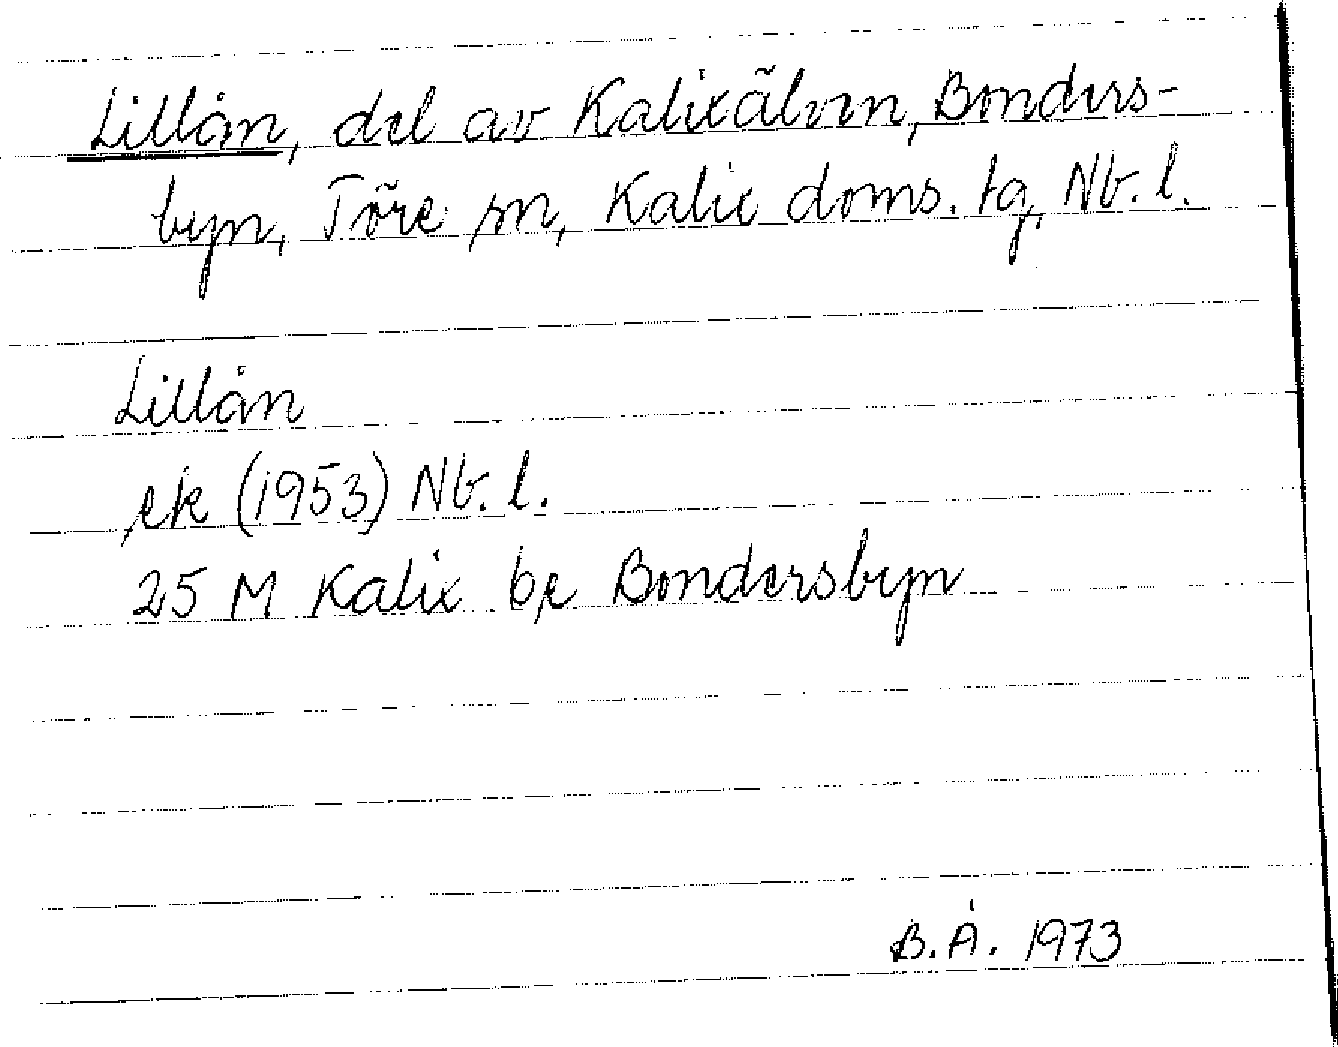 Lillån, del av Kalixälven, Bonders-
byn, Töre sn, Kalix doms. tg, Nb. l.
Lillån
ek (1953) Nb. l.
25 M Kalix be Bondersbyn
B.Å. 1973